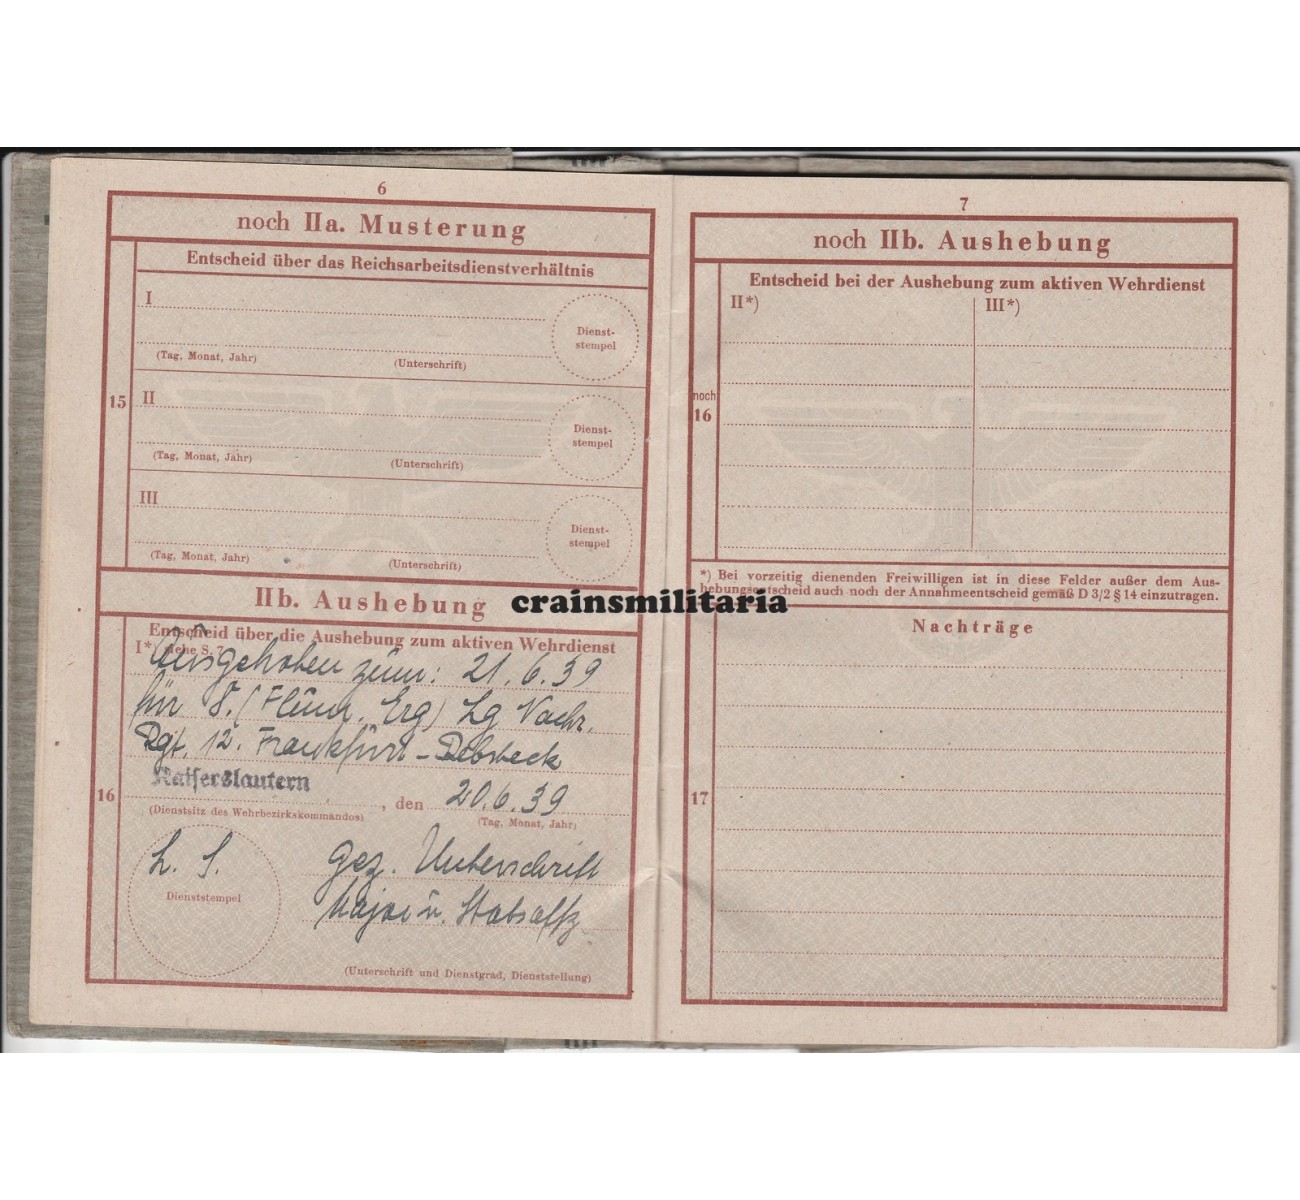 6
noch IIa. Musterung
15
Entscheid über das Reichsarbeitsdienstverhältnis
I
Dienst-
stempel
(Tag, Monat, Jahr) (Unterschrift)
II
Dienst-
stempel
(Tag, Monat, Jahr) (Unterschrift)
III
Dienst-
stempel
(Tag, Monat, Jahr) (Unterschrift)
IIb. Aushebung
16
Entscheid über die Aushebung zum aktiven Wehrdienst
I*) siehe S. 7
Ausgehoben zum: 21.6.39
für 8. (Flum. Erg) Lg Nachr.
Rgt. 12. Frankfurt-
Kaiserslautern, den 20.6.39
(Dienstsitz des Wehrbezirkskommandos) (Tag, Monat, Jahr)
L. S. gez. Unterschrift
Dienststempel
Major u.
(Unterschrift und Dienstgrad, Dienststellung)
7
noch IIb. Aushebung
noch
16
Entscheid bei der Aushebung zum aktiven Wehrdienst
II*) III*)
*) Bei vorzeitig dienenden Freiwilligen ist in diese Felder außer dem Aus-
hebungsentscheid auch noch der Annahmeentscheid gemäß D 3/2 § 14 einzutragen.
17
Nachträge
crainsmilitaria